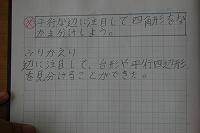 平行な辺に注目して四角形をな
かま分けしよう。
ふりかえり
辺に注目して、台形や平行四辺形
を見分けることができた。